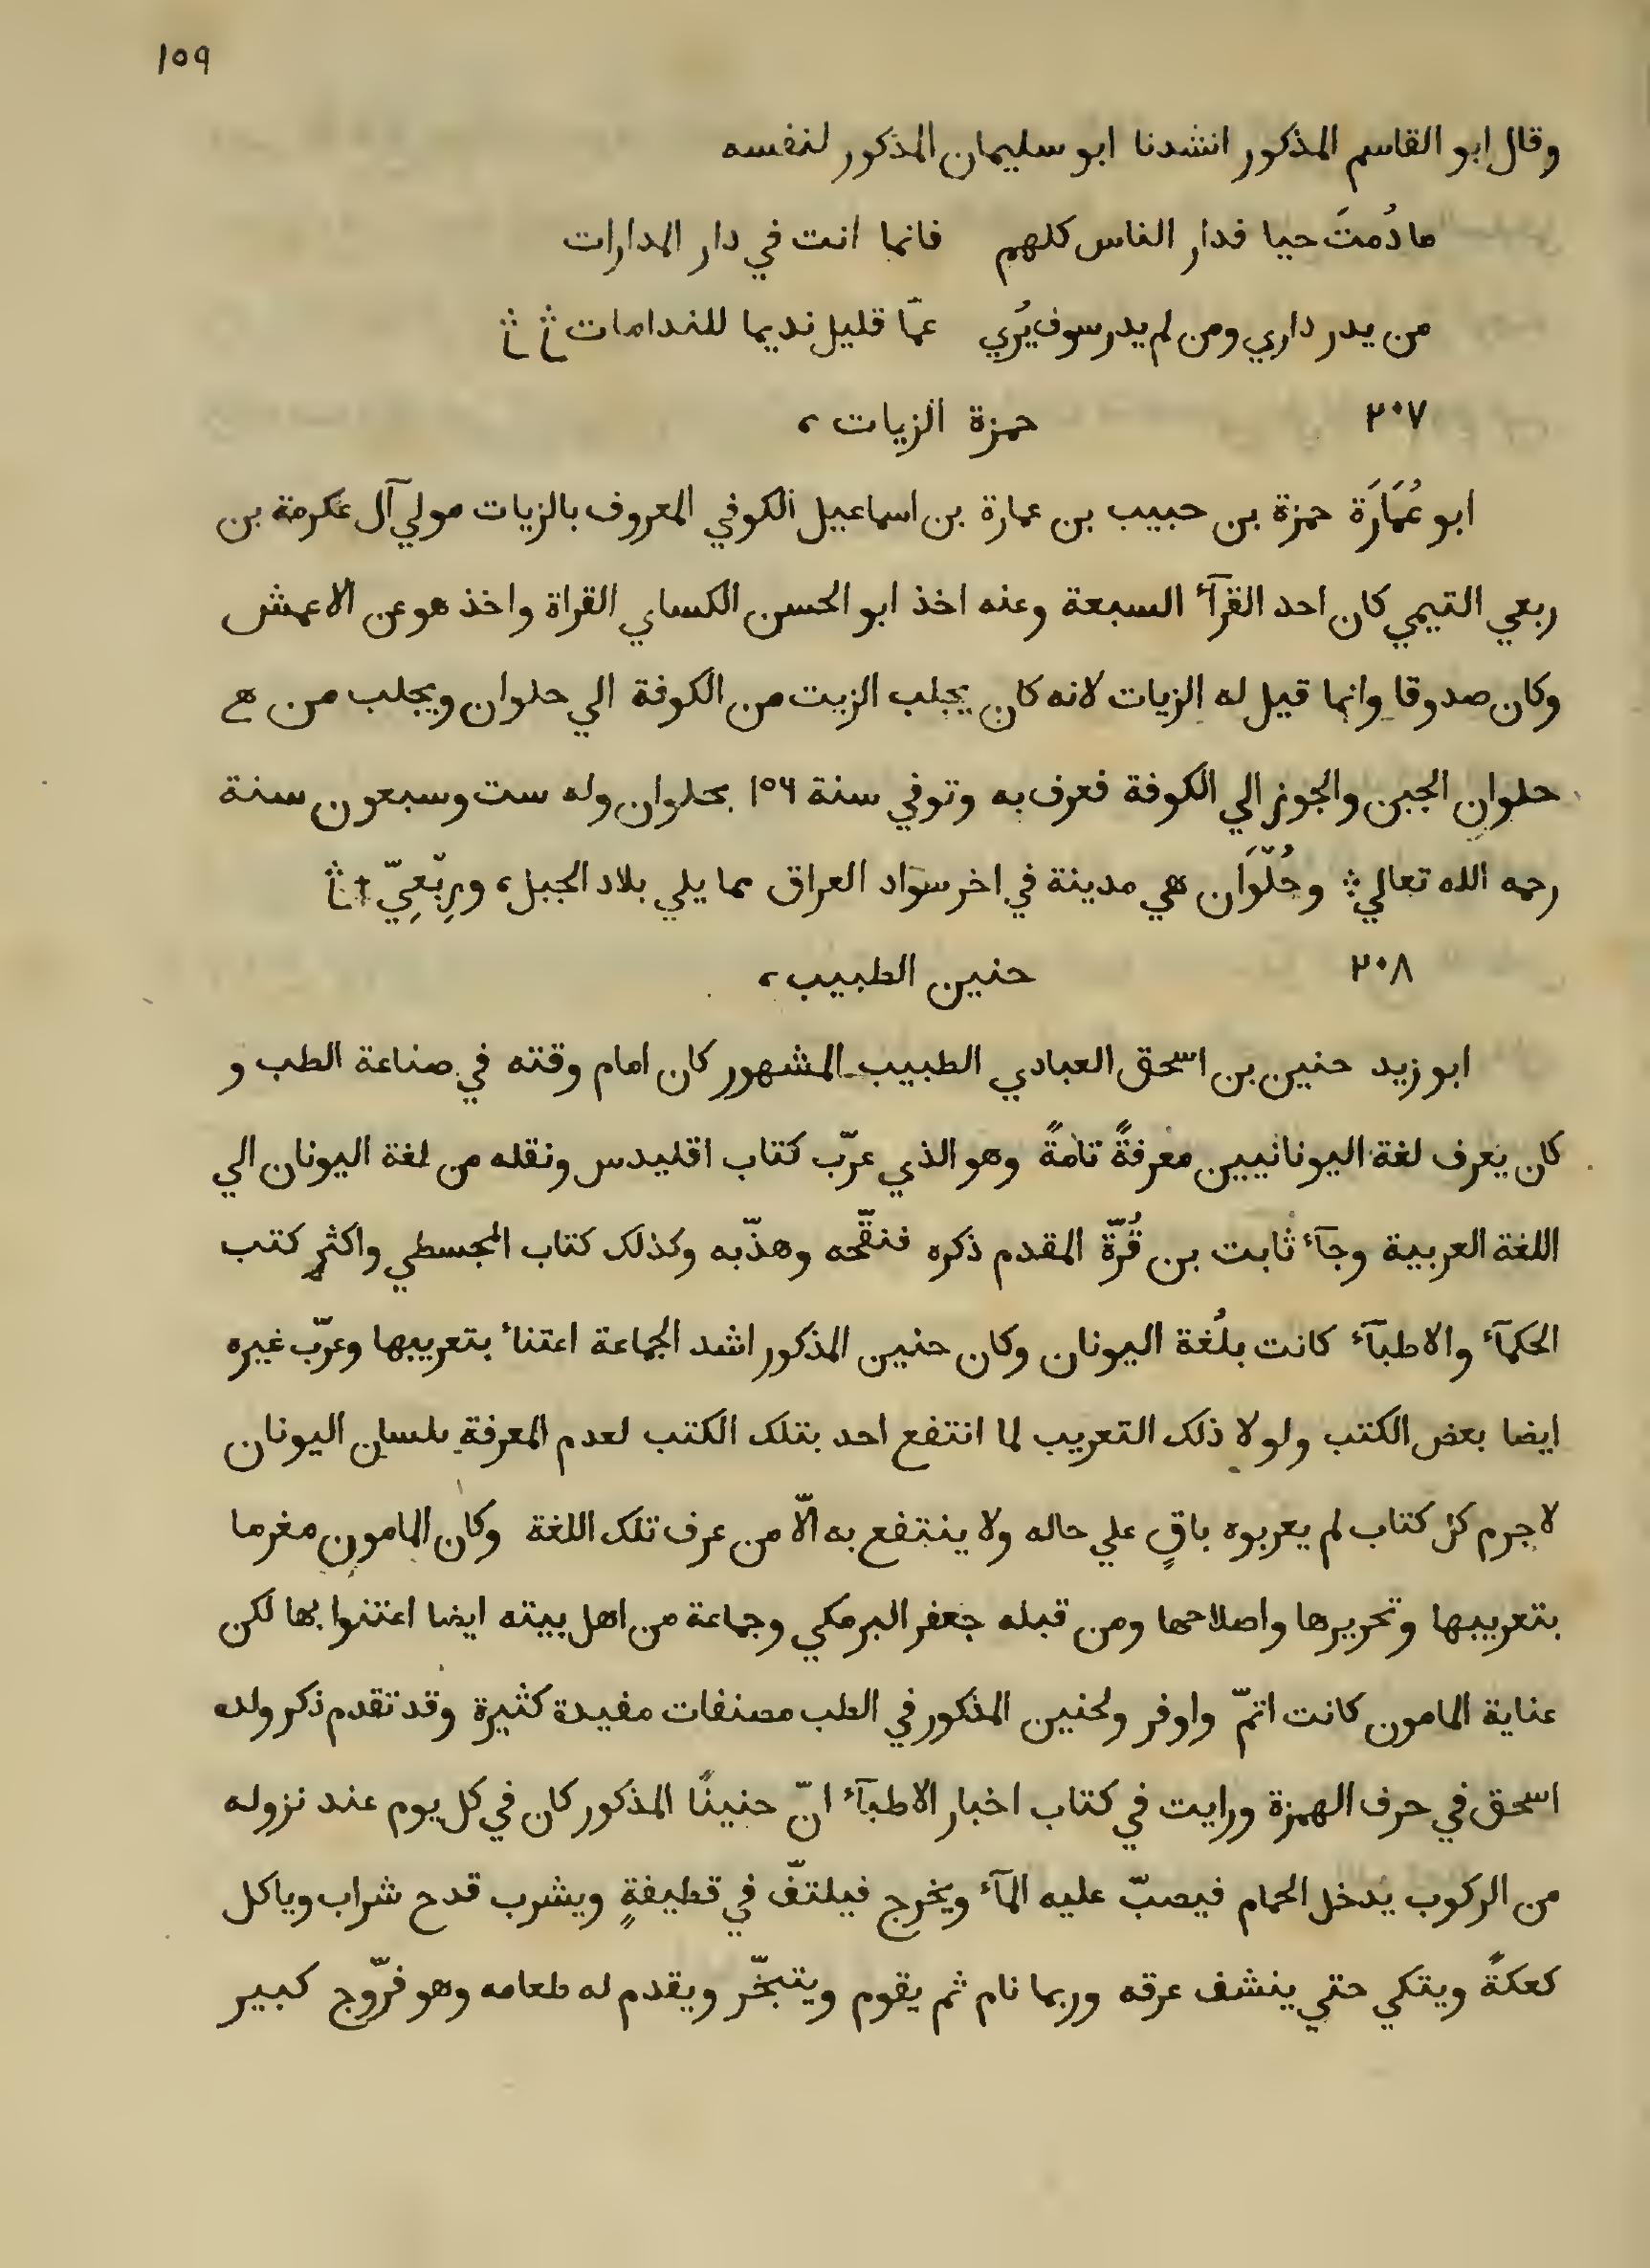 ١٥٩
وقال ابو القاسم المذكور انشدنا ابو سليمان المذكور لنفسه
ما دُمتَ حيا فدار الناس كلهم فانما انت في دار المدارات
من يدر داري ومن لم يدر سوف يُري عمّا قليل نديما للندامات
٢٠٧ حمزة الزيات،
ابو عُمَارَة حمزة بن حبيب بن عمارة بن اسماعيل الكوفي المعروف بالزيات مولي آل عكرمة بن
ربعي التيمي كان احد القرآء السبعة وعنه اخذ ابو الحسن الكساي القراة واخذ هو عن الاعمش
وكان صدوقا وانما قيل له الزيات لانه كان يجلب الزيت من الكوفة الي حلوان ويجلب من
حلوان الجبن والجوز الي الكوفة فعرف به وتوفي سنة ١٥٦ بحلوان وله ست وسبعون سنة
رحمه الله تعالي وحُلْوَان هي مدينة في اخر سواد العراق مما يلي بلاد الجبل، ورِبْعِيّ †
٢٠٨ حنين الطبيب،
ابو زيد حنين بن اسحق العبادي الطبيب المشهور كان امام وقته في صناعة الطب و
كان يعرف لغة اليونانيين معرفةً تامةً وهو الذي عرّب كتاب اقليدس ونقله من لغة اليونان الي
اللغة العربية وجآء ثابت بن قُرّة المقدم ذكره فنقّحه وهذّبه وكذلك كتاب المجسطي واكثر كتب
الحكمآء والاطبآء كانت بلُغة اليونان وكان حنين المذكور اشد الجماعة اعتناء بتعريبها وعرّب غيره
ايضا بعض الكتب ولولا ذلك التعريب لما انتفع احد بتلك الكتب لعدم المعرفة بلسان اليونان
لا جرم كل كتاب لم يعربوه باقٍ علي حاله ولا ينتفع به الّا من عرف تلك اللغة وكان المامون مغرما
بتعريبها وتحريرها واصلاحها ومن قبله جعفر البرمكي وجماعة من اهل بيته ايضا اعتنوا بها لكن
عناية المامون كانت اتمّ واوفر ولحنين المذكور في الطب مصنفات مفيدة كثيرة وقد تقدم ذكر ولده
اسحق في حرف الهمزة ورايت في كتاب اخبار الاطبآء انّ حنينًا المذكور كان في كل يوم عند نزوله
من الركوب يدخل الحمام فيصبّ عليه المآء ويخرج فيلتفّ في قطيفةٍ ويشرب قدح شراب وياكل
كعكةً ويتكي حتي ينشف عرقه وربما نام ثم يقوم ويتبخّر ويقدم له طعامه وهو فرّوج كبير